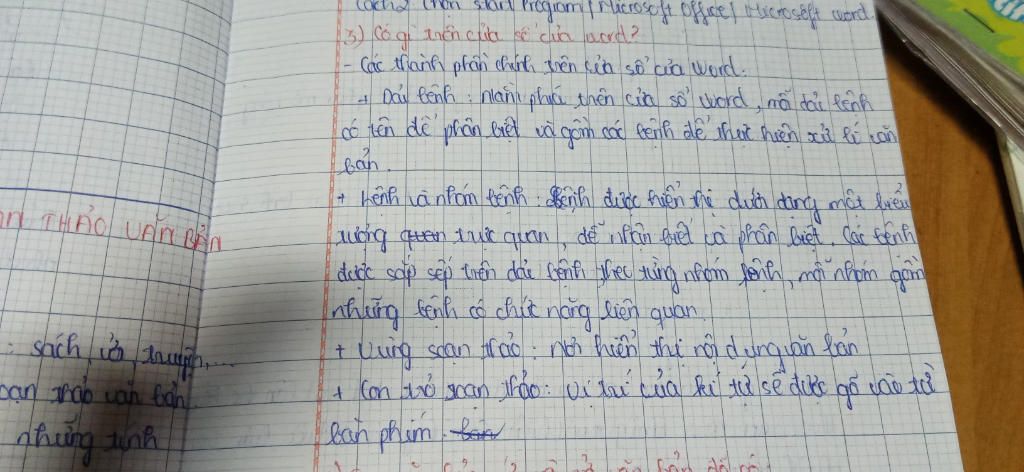 Cách2 chọn start Program / Microsoft Office / Microsoft word.
3) Có gì trên cửa sổ của word?
- Các thành phần chính trên cửa sổ của Word.
+ Dải lệnh: nằm phía trên cửa sổ word, mỗi dải lệnh
có tên để phân biệt và gồm các lệnh để thực hiện xử lí văn
bản.
+ Lệnh và nhóm lệnh: lệnh được hiển thị dưới dạng một biểu
tượng trực quan, dễ nhận biết và phân biệt. Các lệnh
được sắp sếp trên dải lệnh theo từng nhóm lệnh, mỗi nhóm gồm
những lệnh có chức năng liên quan.
+ Vùng soạn thảo: nơi hiển thị nội dung văn bản
+ Con trỏ soạn thảo: Vị trí của kí tự sẽ được gõ vào từ
bàn phím.
THẢO VĂN BẢN
: sách, vở, truyện,...
oạn thảo văn bản
những tính